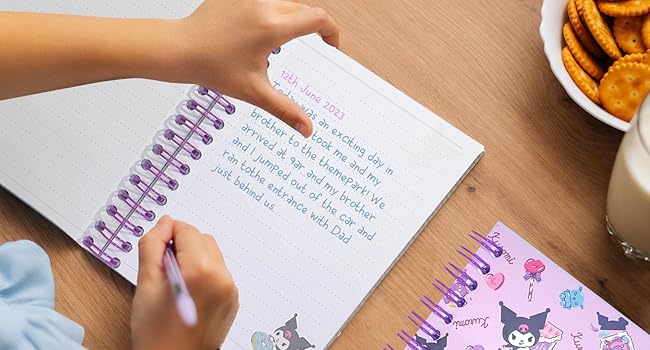 12th June 2023
Today was an exciting day in
took me and my
brother to the themepark! We
arrived at 9ar and my brother
and I jumped out of the car and
ran tothe entrance with Dad
just behind us.
Kuromi
Kuromi
Kuromi